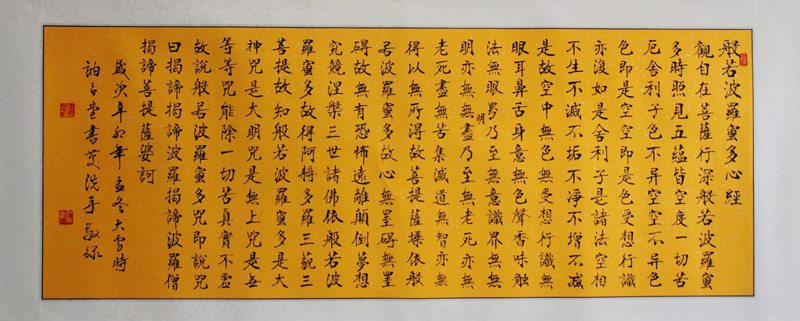 般若波羅蜜多心經
觀自在菩薩行深般若波羅蜜
多時照見五蘊皆空度一切苦
厄舍利子色不異空空不異色
色即是空空即是色受想行識
亦復如是舍利子是諸法空相
不生不滅不垢不淨不增不減
是故空中無色無受想行識無
眼耳鼻舌身意無色聲香味触
法無眼界乃至無意識界無無
明亦無無明盡乃至無老死亦無
老死盡無苦集滅道無智亦無
得以無所得故菩提薩埵依般
若波羅蜜多故心無罣碍無罣
碍故無有恐怖遠離顛倒夢想
究競涅槃三世諸佛依般若波
羅蜜多故得阿耨多羅三藐三
菩提故知般若波羅蜜多是大
神咒是大明咒是無上咒是無
等等咒能除一切苦真實不虛
故說般若波羅蜜多咒即說咒
曰揭諦揭諦波羅揭諦波羅僧
揭諦菩提薩婆訶
歲次辛卯年孟冬大雪時
堂書洗手敬録